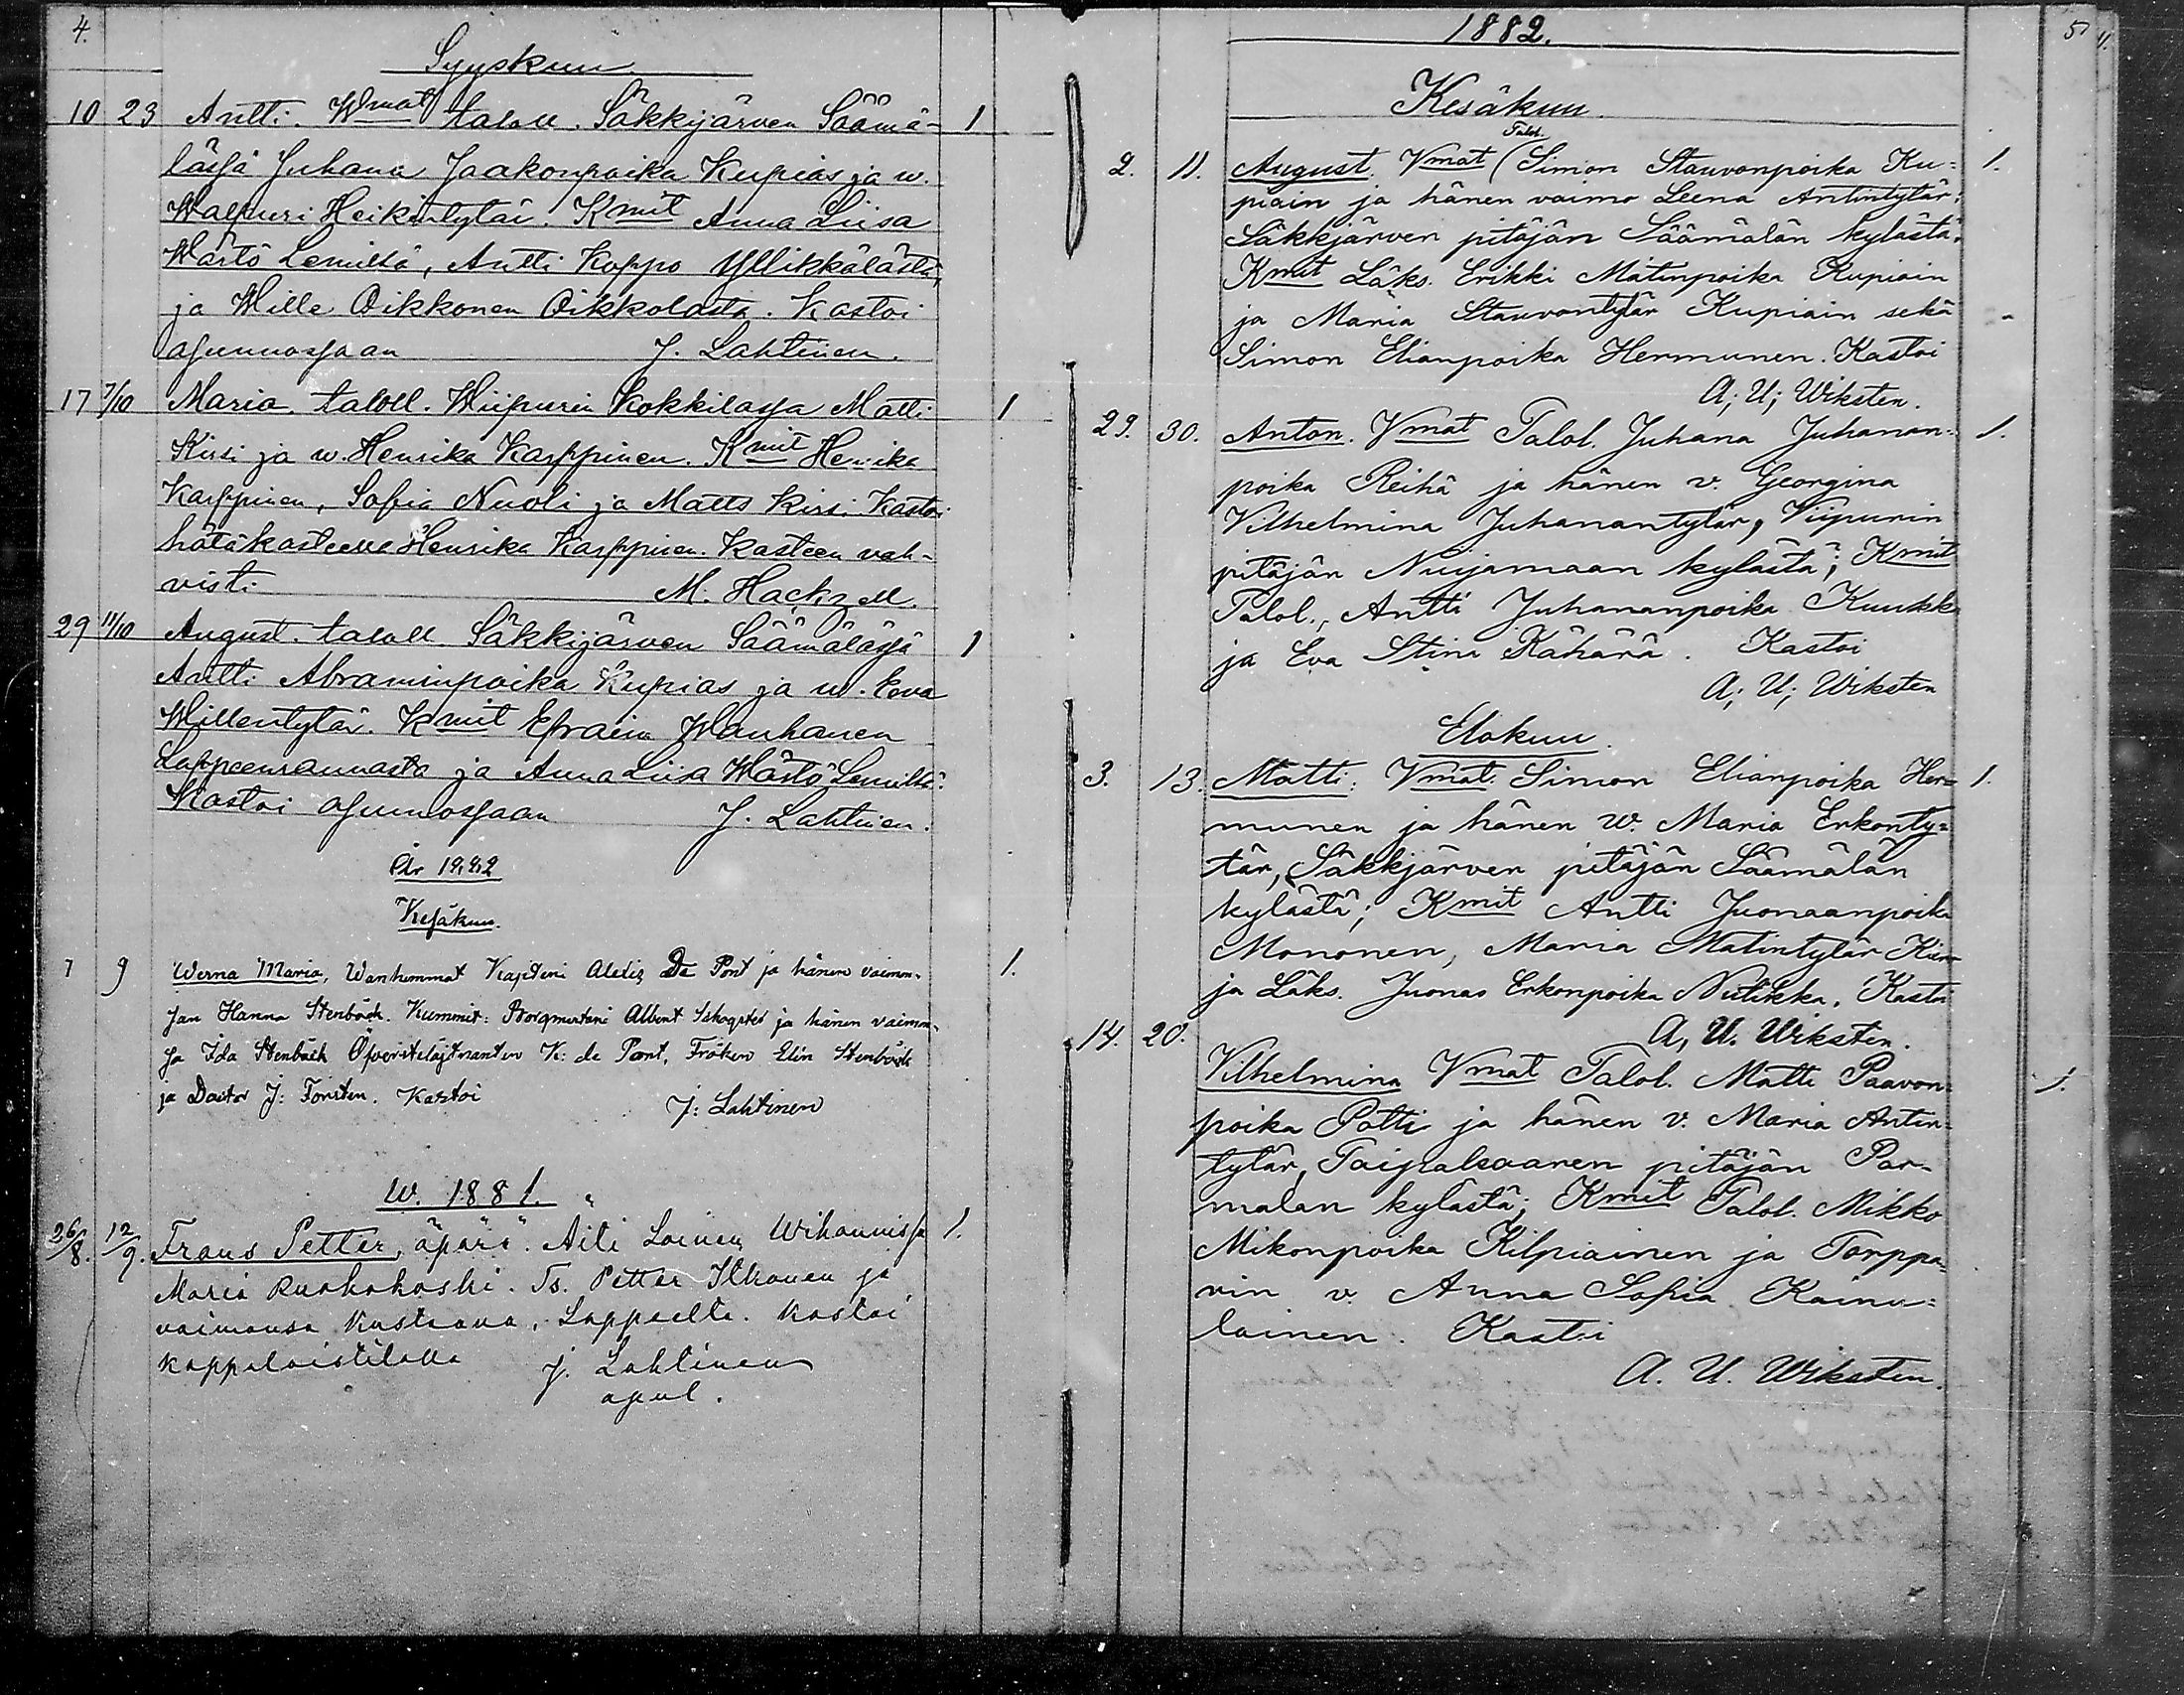 4.
Syyskuu
10 23 Antti. Wmat taloll. Säkkijärven Säämä- 1
lässä Juhana Jaakonpoika Kupias ja w.
Walpuri Heikintytär. Kmit Anna Liisa
Wärtö Lemiltä, Antti Koppo Yllikkälästä,
ja Wille Oikkonen Oikkolasta. Kastoi
asunnossaan J. Lahtinen.
17 7/10 Maria. taloll. Wiipurin Kokkilassa Matti 1
Kirsi ja w. Henrika Karppinen. Kmit Henrika
Karppinen, Sofia Nuoli ja Matts Kirsi. Kastoi
hätäkasteella Henrika Karppinen. Kasteen vah-
visti M. Hackzell.
29 11/10 August. taloll. Säkkijärven Säämälässä 1
Antti Abraminpoika Kupias ja w. Eeva
Willentytär. Kmit Efraim Wanhanen
Lappeenrannasta ja Anna Liisa Wärtö Lemiltä.
Kastoi asunnossaan J. Lahtinen.
År 1882
Kesäkuu.
7 9 Werna Maria, Wanhemmat Kapteni Alexis De Pont ja hänen vaimon- 1.
san Hanna Stenbäck. Kummit: Borgmestari Albert Skogster ja hänen vaimon-
sa Ida Stenbäck Öfverstelöjtnanten K: de Pont, Fröken Elin Stenbäck
ja Doctor J: Forsten. Kastoi J: Lahtinen
W. 1881.
26/8. 12/9. Frans Petter, äpärä. Äiti Loinen Wihannissa 1.
Maria Ruohokoski. Ts. Petter Ilkonen ja
vaimonsa Kustaava, Lappeelta. Kastoi
kappalaistilalla J. Lahtinen
apul.
1882.
5
Kesäkuu
Talol.
2. 11. August. Vmat (Simon Stauvonpoika Ku= 1.
piain ja hänen vaimo Leena Antintytär;
Säkkjärven pitäjän Säämälän kylästä;
Kmit Läks. Erikki Matinpoika Kupiain
ja Maria Stauvontytär Kupiain sekä
Simon Elianpoika Hermunen. Kastoi
A; U; Wiksten.
29. 30. Anton. Vmat Talol. Juhana Juhanan- 1.
poika Reihä ja hänen v. Georgina
Vilhelmina Juhanantytär, Viipurin
pitäjän Nuijamaan kylästä; Kmit
Talol., Antti Juhananpoika Kuukka
ja Eva Stina Kähärä. Kastoi
A; U; Wiksten
Elokuu.
3. 13. Matti: Vmat. Simon Elianpoika Her= 1.
munen ja hänen w. Maria Erkonty=
tär, Säkkjärven pitäjän Säämälän
kylästä; Kmit Antti Juonaanpoika
Mononen, Maria Matintytär
ja Läks. Juonas Erkonpoika Nutikka. Kastoi
A, U. Wiksten.
14. 20.
Vilhelmina Vmat Talol. Matti Paavon= 1.
poika Potti ja hänen v. Maria Antin=
tytär, Taipalsaaren pitäjän Par-
malan kylästä; Kmit Talol. Mikko
Mikonpoika Kilpiainen ja Torppa=
rin v. Anna Sofia Kainu=
lainen. Kastoi
A. U. Wiksten.